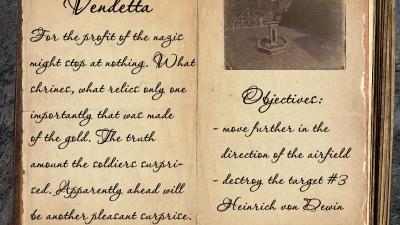 Vendetta
For the profit of the nazis
might stop at nothing. What
shrines, what relics only one
importantly that was made
of the gold. The truth
amount the soldiers surpri-
sed. Apparently ahead will
be another pleasant surprise.
Objectives:
- move further in the
direction of the airfield
- destroy the target #3
Heinrich von Dewin